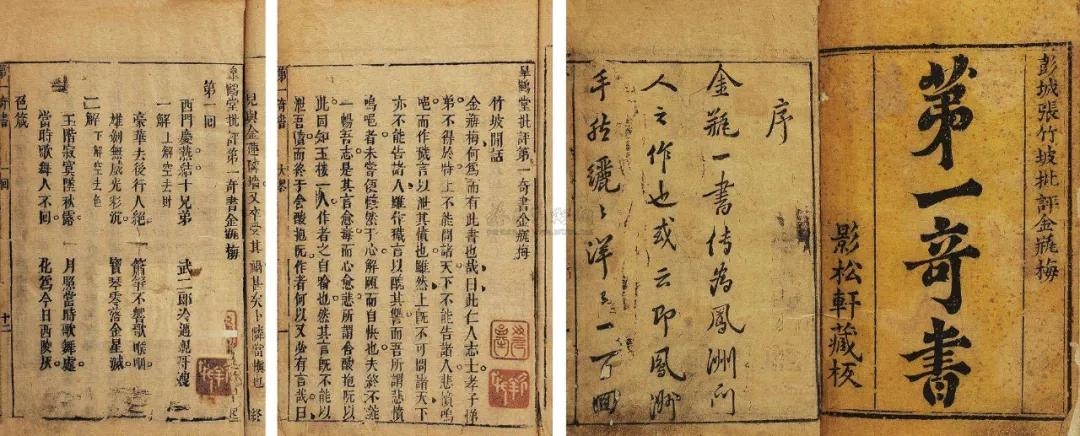 彭城張竹坡批評金瓶梅
第一奇書
影松軒藏板
序
金瓶一書傳為鳳洲門
人之作也或云即鳳洲
手然纚々洋々一百回
皐鶴堂批評第一奇書金瓶梅
竹坡閒話
金瓶梅何為而有此書也哉曰此仁人志士孝子悌
弟不得於時上不能問諸天下不能告諸人悲憤嗚
唈而作穢言以泄其憤也雖然上既不可問諸天下
亦不能告諸人雖作穢言以醜其讐而吾所謂悲憤
嗚唈者未嘗便慊然于心解頤而自快也夫終不能
一暢吾志是其言愈毒而心愈悲所謂含酸抱阮以
此固知玉樓一人作者之自喻也然其言既不能以
泄吾憤而終于含酸抱阮作者何以又必有言哉曰
第一奇書
皐鶴堂批評第一奇書金瓶梅
第一回
西門慶熱結十兄弟 武二郎冷遇親哥嫂
一解 上解空去財
豪華去後行人絕 簫箏不響歌喉咽
雄劍無威光彩沉 寶琴零落金星滅
二解 下解空去色
玉階寂寞墜秋露 月照當時歌舞處
當時歌舞人不回 化為今日西陵灰
色箴
第一奇書 一回